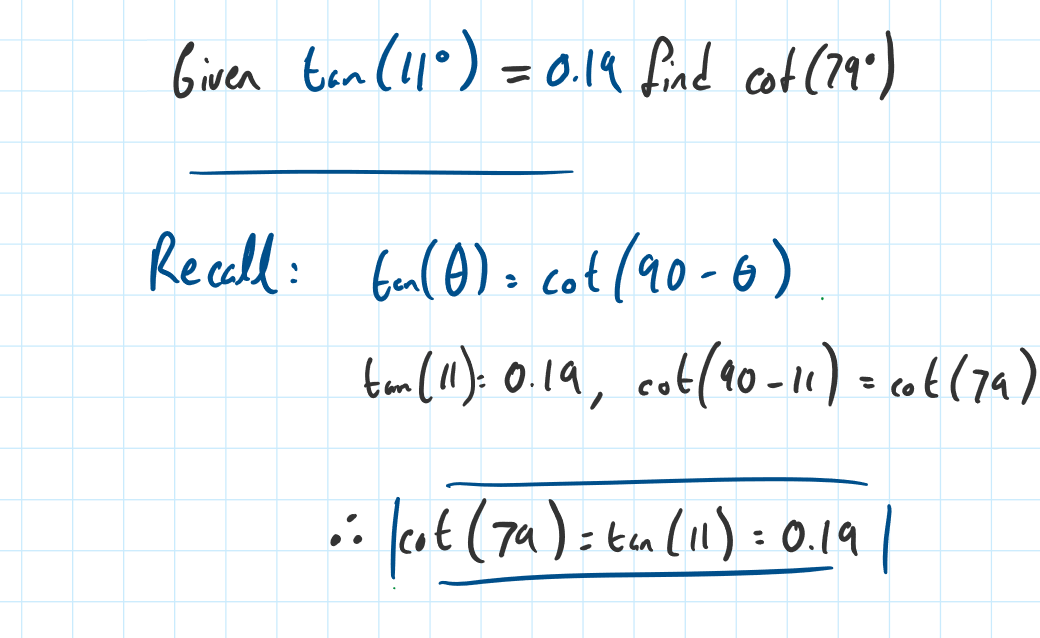 Given tan(11°) = 0.19 find cot(79°)
Recall: tan(θ) = cot(90 - θ)
tan(11) = 0.19, cot(90 - 11) = cot(79)
∴ cot(79) = tan(11) = 0.19